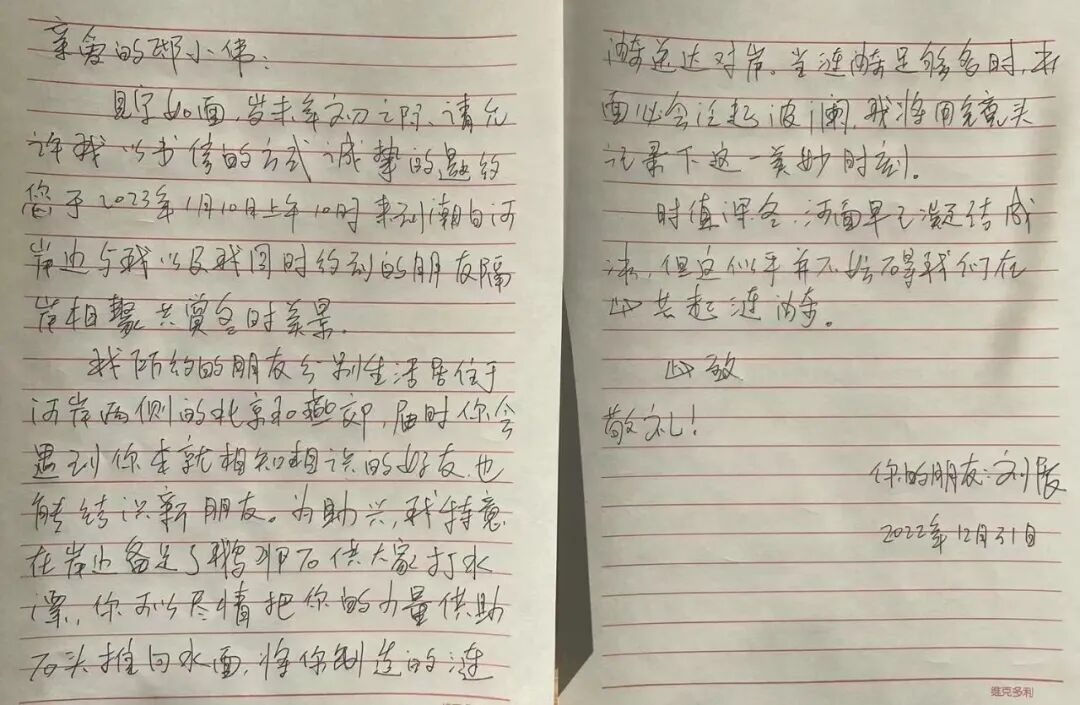 亲爱的邓小伟：
见字如面，岁末年初之际，请允
许我以书信的方式诚挚的邀约
您于2023年1月10日上午10时来到潮白河
岸边与我以及我同时约到的朋友隔
岸相聚共赏冬时美景。
我所约的朋友分别生活居住于
河岸两侧的北京和燕郊，届时你会
遇到你本就相知相识的好友也
能结识新朋友。为助兴，我特意
在岸边备足了鹅卵石供大家打水
漂，你可以尽情把你的力量供助
石头推向水面，将你制造的涟
漪送达对岸。当涟漪足够多时，水
面必会泛起波澜，我将用镜头
记录下这一美妙时刻。
时值深冬，河面早已凝结成
冰，但这似乎并不妨碍我们在
此共起涟漪。
此致
敬礼！
你的朋友：刘展
2022年12月31日
维克多利